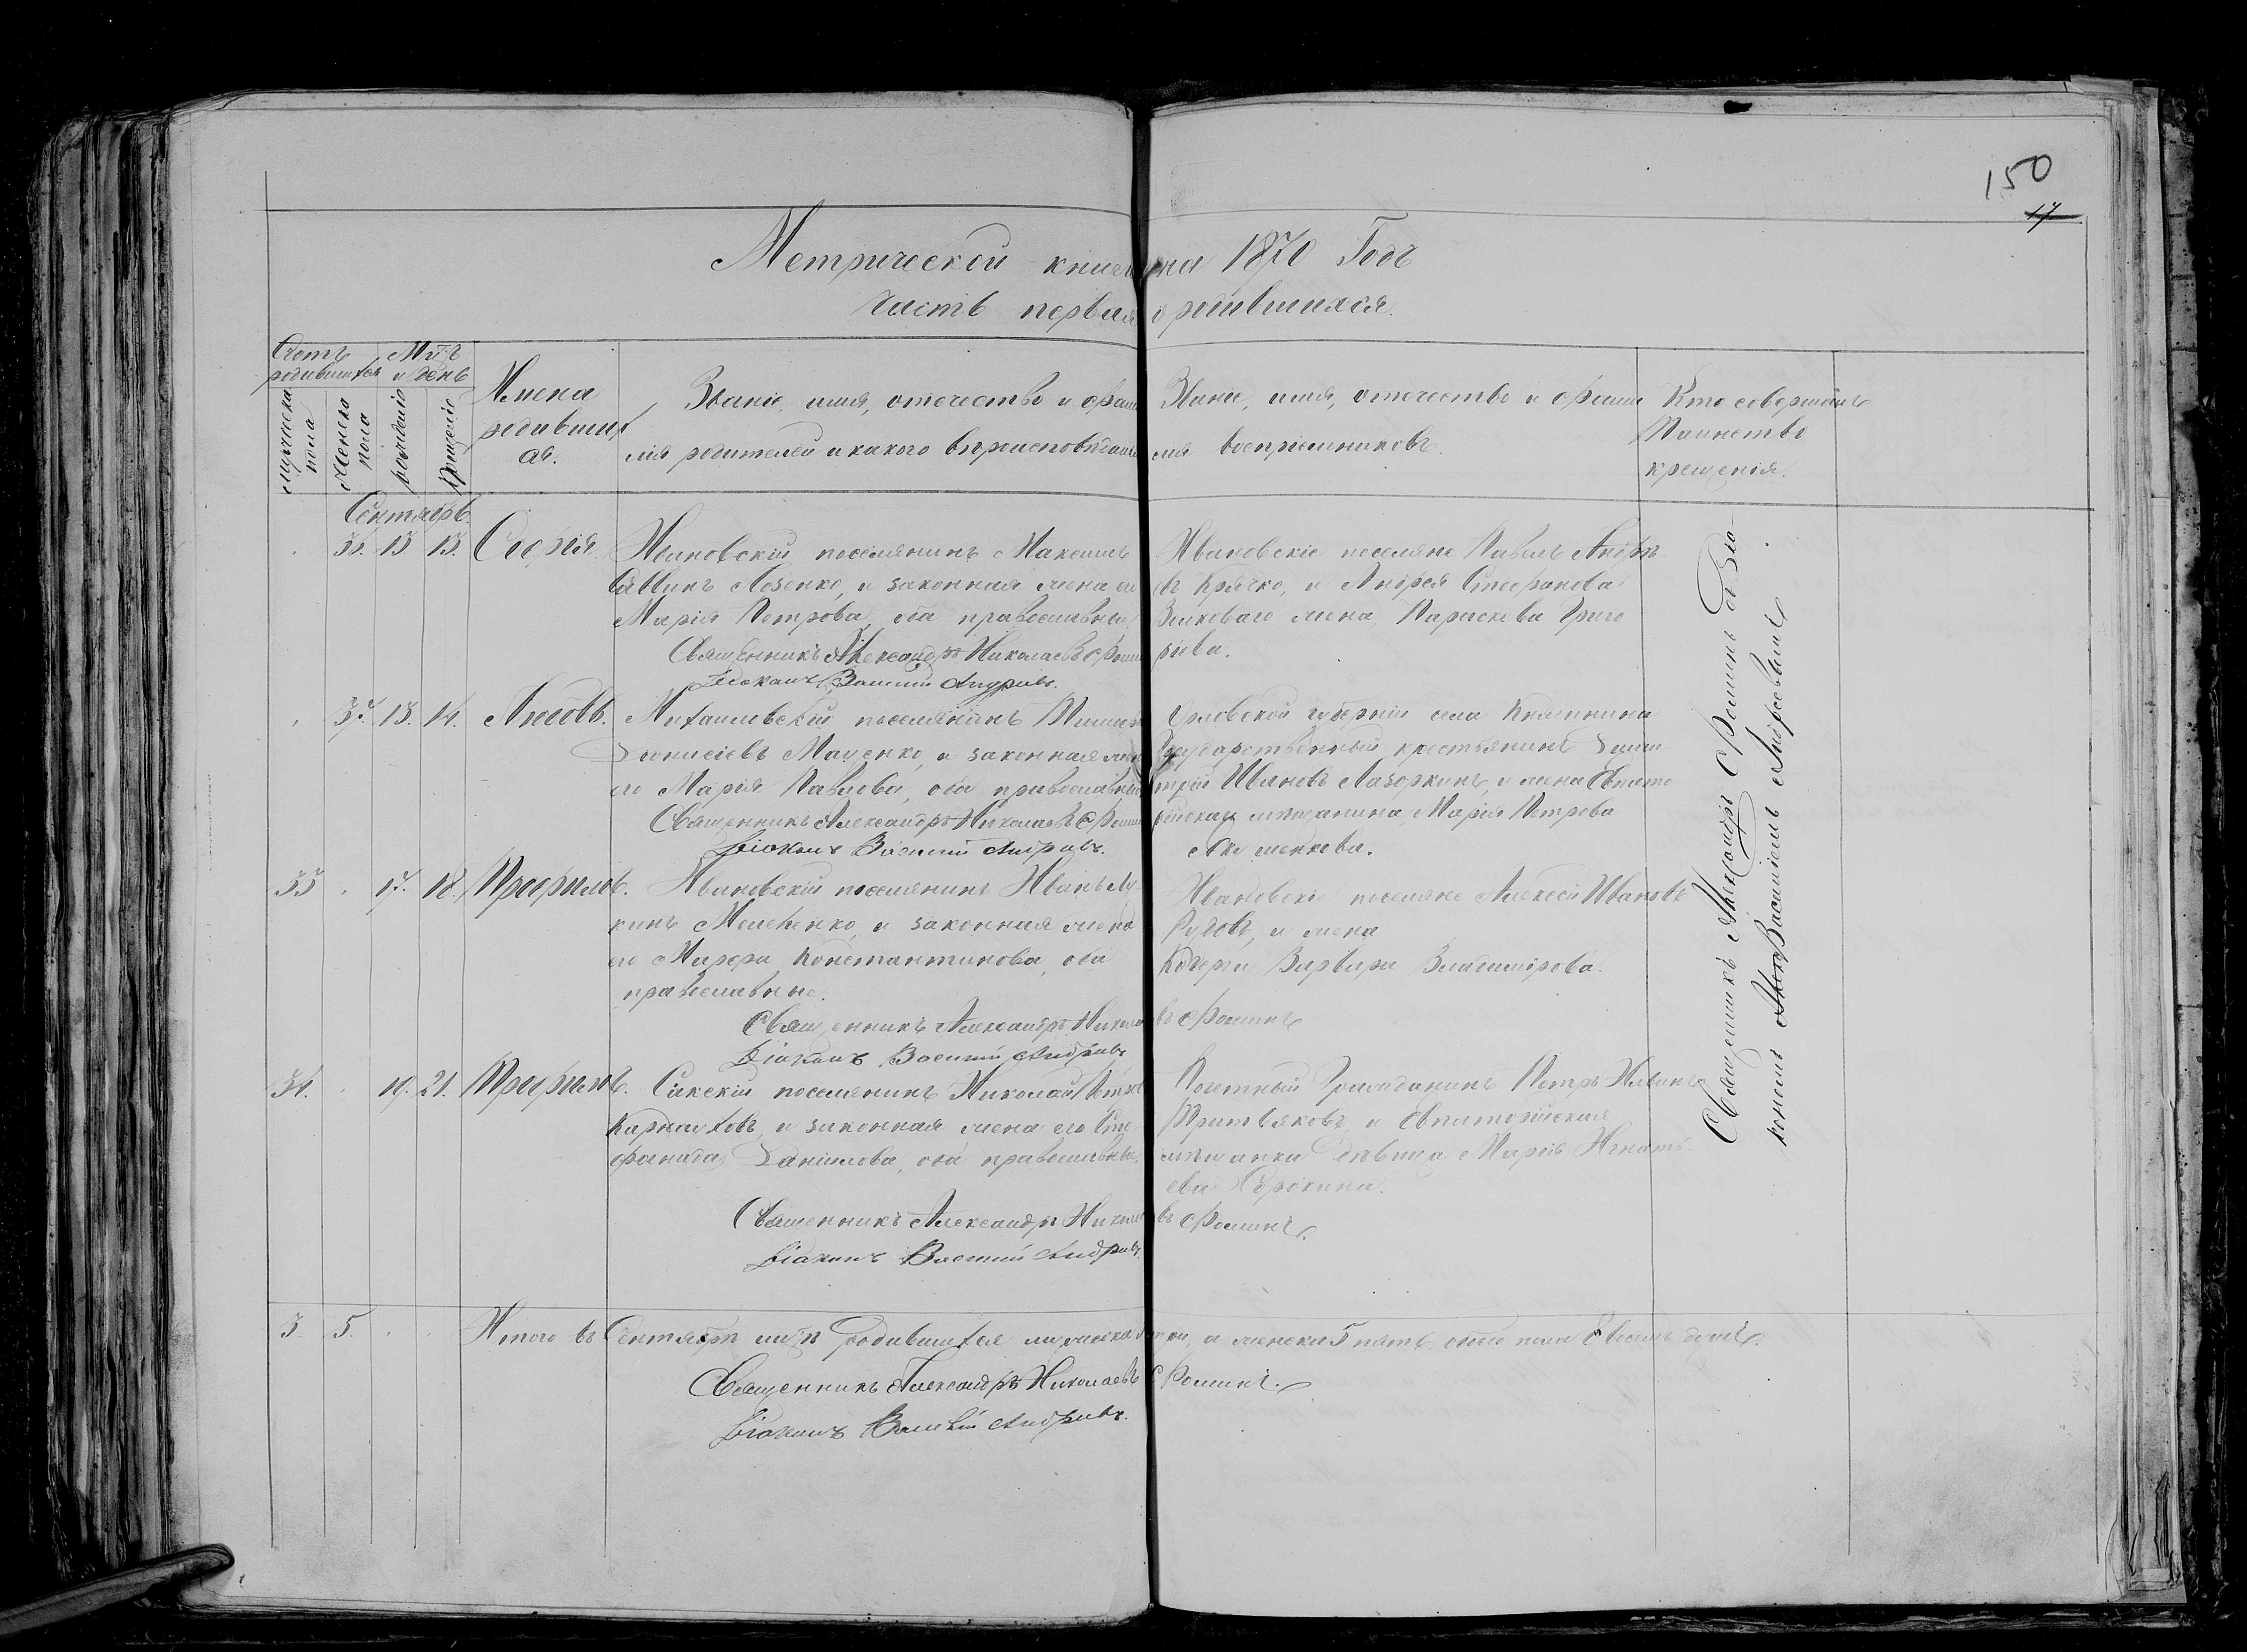 150
17
Метрической книги на 1870 Годъ
часть первая о родившихся.
Счетъ родившихся
Мц-ъ и день
Мужеска пола
Женска пола
рожденія
Крещенія
Имена родившихся.
Званіе, имя, отечество и фами
лія родителей и какого вѣроисповѣданія
Званіе, имя, отечество и фами
лія воспріемниковъ.
Кто совершалъ
Таинство
крещенія.
Сентябрь.
36. 13 13. Софія
Ивановскій поселянинъ Максимъ
Саввинъ Лозенко, и законная жена его
Марія Петрова, оба православные.
Священникъ Александръ Николаевъ Фоминъ
Діаконъ Василій Андреевъ.
Ивановскіе поселяне Павелъ Андре
евъ Крячко, и Андрея Стефанова
Волковаго жена, Параскева Григо
рьева.
37. 13. 14. Любовь.
Михайловскій поселянинъ
Діонисіевъ Маценко, и законная жена
его Марія Павлова, оба православные
Священникъ Александръ Николаевъ Фоминъ
Діаконъ Василій Андреевъ.
Орловской губерніи села
Государственный крестьянинъ Дими
трій Ивановъ Лазоркинъ, и жена Евпато
рійскаго мѣщанина, Марія Петрова
33 17. 18. Трофимъ.
Ивановскій поселянинъ Иванъ Лу
кинъ, и законная жена
его Марфа Константинова, оба
православные.
Священникъ Александръ Николаевъ Фоминъ
Діаконъ Василій Андреевъ
Ивановскіе поселяне Алексей Ивановъ
и жена
Варвара Владимірова.
34. 19. 21. Трофимъ.
Сакскій поселянинъ Николай Петровъ
Карнауховъ, и законная жена его Сте
фанида Данилова, оба православные.
Священникъ Александръ Николаевъ Фоминъ
Діаконъ Василій Андреевъ.
Почетный Гражданинъ Петръ Ивановъ
Третьяковъ, и Евпаторійская
мѣщанка Девица Марія Игнать
ева Сорокина.
Священникъ Александръ Фоминъ съ Діа
кономъ Василіемъ Андреевымъ.
3. 5. Итого въ Сентябрѣ м-цѣ родившихся мужеска три, и женска 5 пять, обоего пола 8 восемь душъ.
Священникъ Александръ Николаевъ Фоминъ.
Діаконъ Василій Андреевъ.